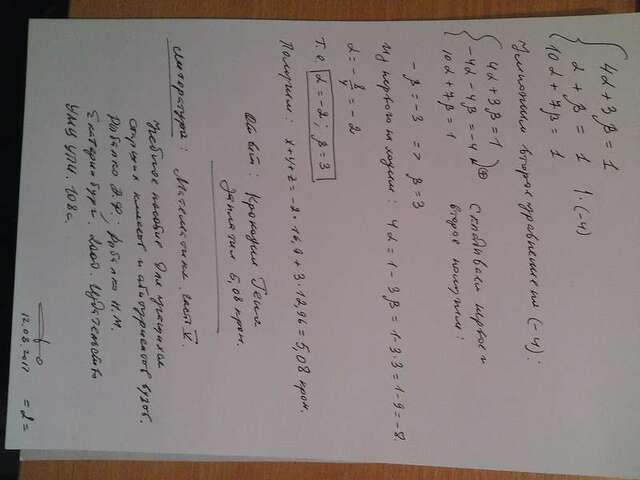 { 4α + 3β = 1
α + β = 1 | · (-4)
10α + 7β = 1
Умножим второе уравнение на (-4):
{ 4α + 3β = 1
-4α - 4β = -4 ⊕
10α + 7β = 1
Складываем первое и
второе получим:
-β = -3 => β = 3
Из первого получим: 4α = 1 - 3β = 1 - 3·3 = 1 - 9 = -8.
α = -8/4 = -2
Т.о. α = -2; β = 3
Получим: x+y+z = -2 · 16,9 + 3 · 12,96 = 5,08 крон.
Ответ: Крокодил Гена
заплатил 5,08 крон.
Литература: Математика. часть V.
Учебное пособие для учащихся
старших классов и абитуриентов вузов.
Екатеринбург. 2000. Издательство
УМЦ УПИ. 108 с.
12.08.2017
=2=